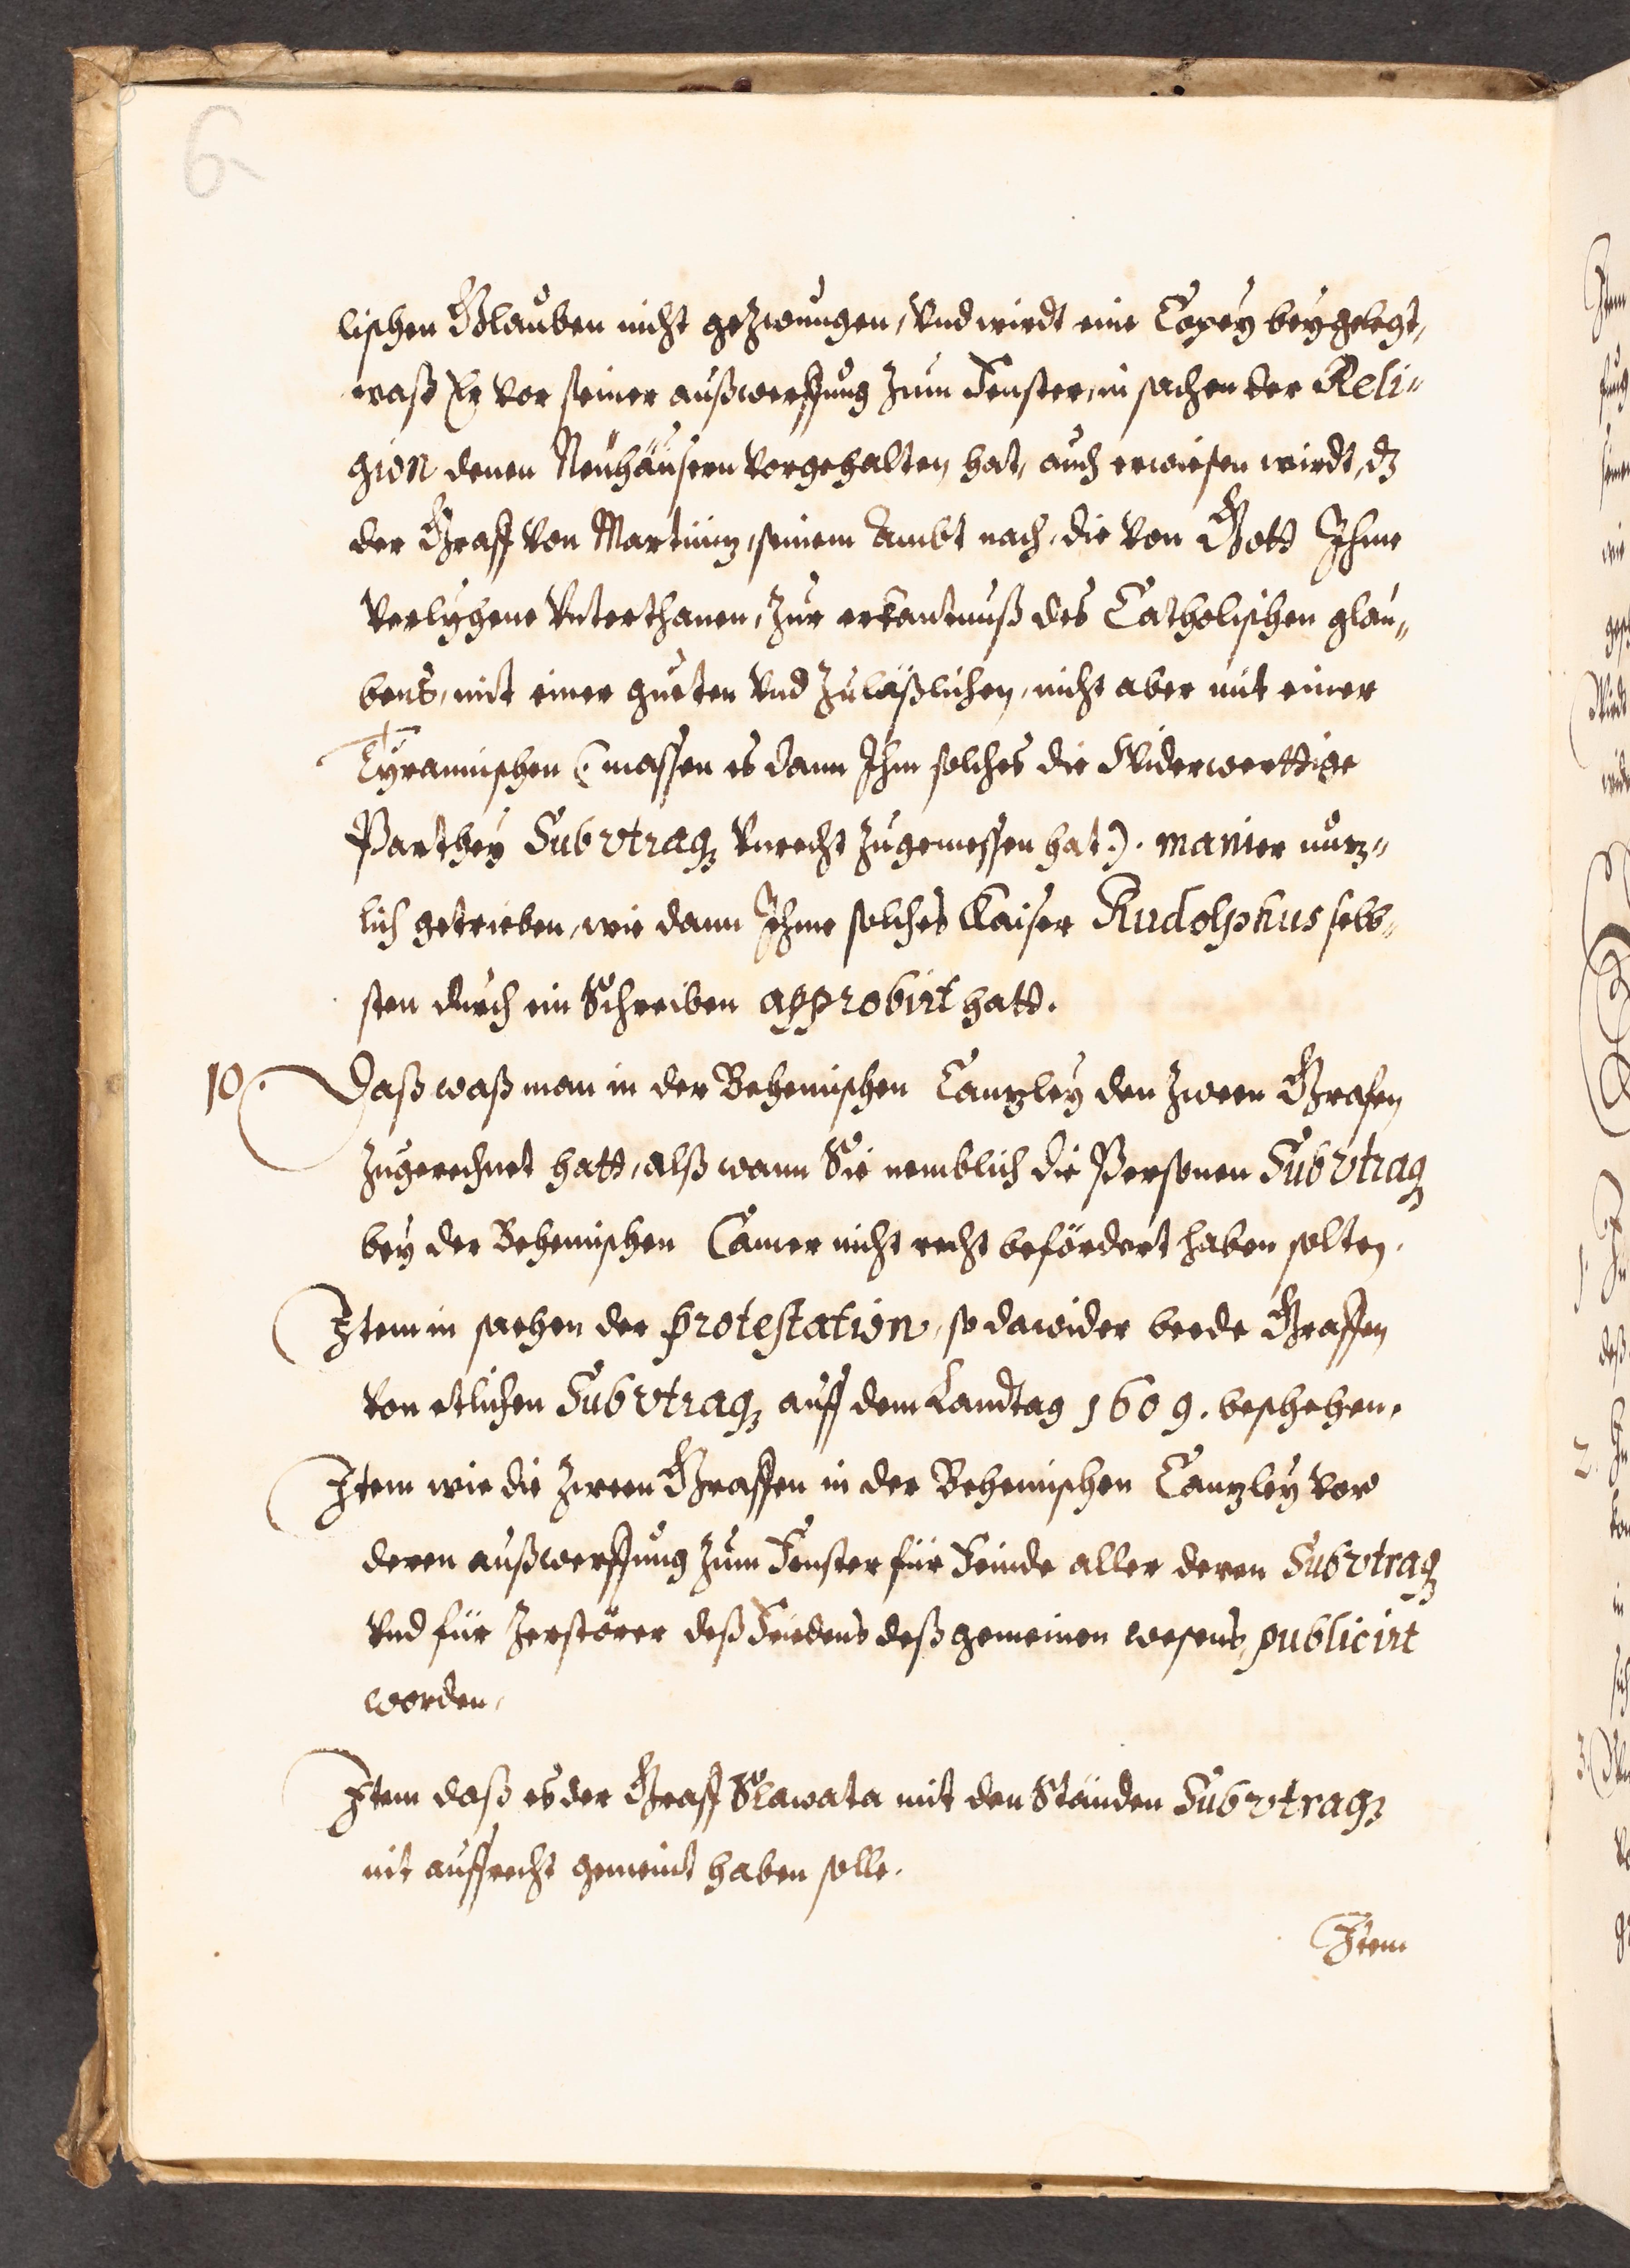 6
lischen Glauben nicht gezwungen, vnd wirdt eine Copey beygelegt,
waß Er vor seiner außwerffung zum Fenster, in sachen der Reli„
gion denen Neuhäusern vorgehalten hat, auch erwiesen wirdt, dz
der Graff von Martiniz, seinem Ambt nach, die von Gott Ihme
verlyhene Vnterthanen, zur erkantnuß des Catholischen glau„
bens, mit einer gueten vnd zuläßlichen, nicht aber mit einer
Tyrannischen (: massen es dann Ihm solches die Widerwerttige
Parthey Sub vtraq3 vnrecht zugemessen hat :). manier
lich getrieben, wie dann Ihme solches Kaiser Rudolphus selb„
sten durch ein Schreiben approbirt hatt.
10. Daß waß man in der Behemischen Canzley den zween Grafen
zugerechnet hatt, alß wann Sie nemblich die Personen Sub vtraq3
bey der Behemischen Camer nicht recht befördert haben solten.
Item in sachen der protestation, so dawider beede Graffen
von etlichen Sub vtraq3 auff dem Landtag 1609. beschehen.
Item wie die zween Graffen in der Behemischen Canzley vor
deren außwerffung zum Fenster für Feinde aller deren Sub vtraq3
vnd für Zerstörer deß Friedens deß gemeinen wesens, publicirt
worden.
Item daß es der Graff Slawata mit den Ständen Sub vtraq3
nit auffrecht gemeint haben solle.
Item